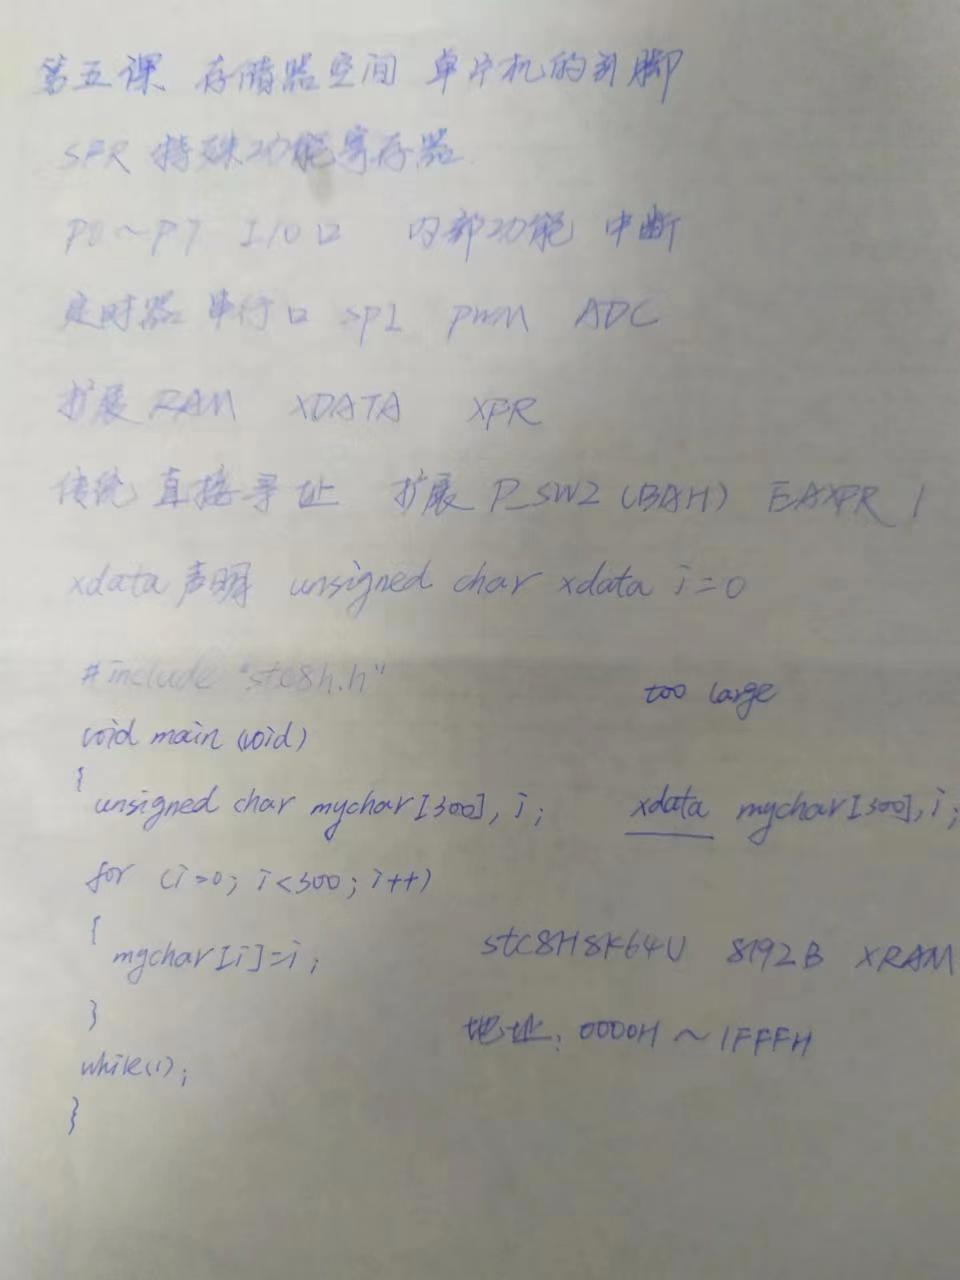 第五课 存储器空间 单片机的引脚
SFR 特殊功能寄存器
P0～P7 I/O口 内部功能 中断
定时器 串行口 SPI PWM ADC
扩展 RAM XDATA XFR
传统 直接寻址 扩展 P_SW2 (BAH) EAXFR 1
xdata 声明 unsigned char xdata i=0
#include "stc8h.h"
too large
void main (void)
{
unsigned char mychar[300], i; xdata mychar[300], i;
for (i=0; i<300; i++)
{
mychar[i]=i; stc8H8K64U 8192B XRAM
}
地址: 0000H ～ 1FFFH
while(1);
}